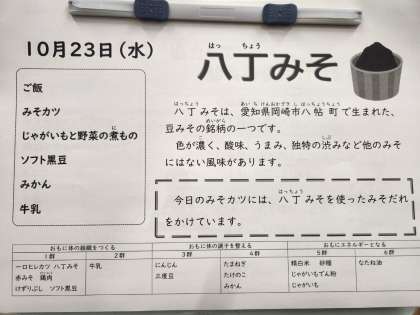 10月23日(水)
はっ ちょう
八丁みそ
ご飯
みそカツ
じゃがいもと野菜の煮もの
に
ソフト黒豆
みかん
牛乳
はっちょう あい ち けんおかざき し はっちょうちょう
八丁みそは、愛知県岡崎市八帖町で生まれた、
めいがら
豆みその銘柄の一つです。
しぶ
色が濃く、酸味、うまみ、独特の渋みなど他のみそ
にはない風味があります。
はっちょう
今日のみそカツには、八丁みそを使ったみそだれ
をかけています。
おもに体の組織をつくる おもに体の調子を整える おもにエネルギーとなる
1群 2群 3群 4群 5群 6群
一口ヒレカツ 八丁みそ 牛乳 にんじん たまねぎ 精白米 砂糖 なたね油
赤みそ 鶏肉 三度豆 たけのこ じゃがいもでん粉
けずりぶし ソフト黒豆 みかん じゃがいも